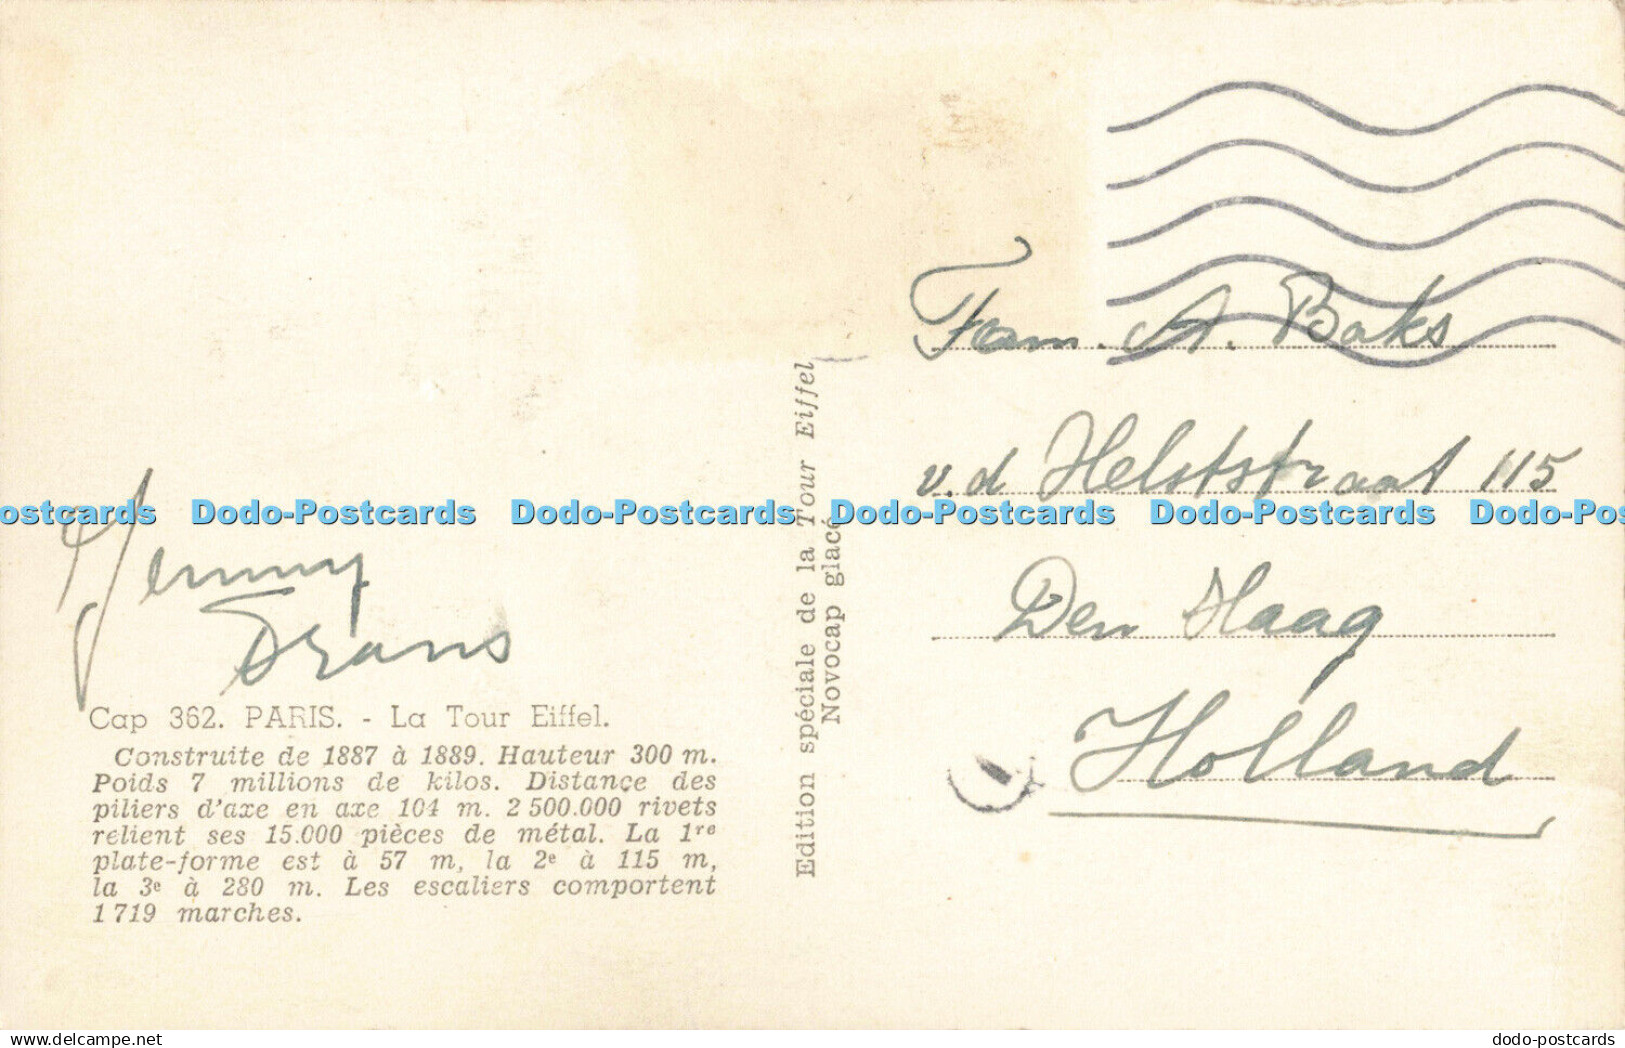 Jenny
Frans
Cap 362. PARIS. - La Tour Eiffel.
Construite de 1887 à 1889. Hauteur 300 m.
Poids 7 millions de kilos. Distance des
piliers d'axe en axe 104 m. 2 500.000 rivets
relient ses 15.000 pièces de métal. La 1re
plate-forme est à 57 m, la 2e à 115 m,
la 3e à 280 m. Les escaliers comportent
1 719 marches.
Edition spéciale de la Tour Eiffel
Novocap glacé
Fam. A. Baks
v.d Helststraat 115
Den Haag
Holland
ostcards Dodo-Postcards Dodo-Postcards Dodo-Postcards Dodo-Postcards Dodo-Pos
www.delcampe.net
dodo-postcards